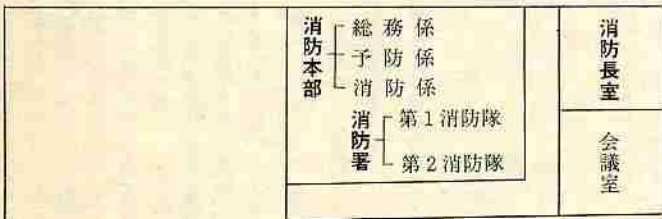 消防本部
総務係
予防係
消防係
消防署
第1消防隊
第2消防隊
消防長室
会議室